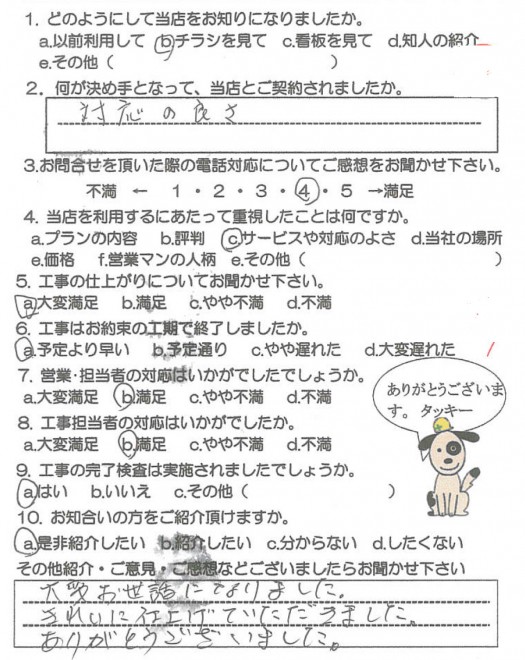 1. どのようにして当店をお知りになりましたか。
a.以前利用して b.チラシを見て c.看板を見て d.知人の紹介
e.その他（ ）
2. 何が決め手となって、当店とご契約されましたか。
対応の良さ
3.お問合せを頂いた際の電話対応についてご感想をお聞かせ下さい。
不満 ← 1・2・3・4・5 →満足
4. 当店を利用するにあたって重視したことは何ですか。
a.プランの内容 b.評判 c.サービスや対応のよさ d.当社の場所
e.価格 f.営業マンの人柄 e.その他（ ）
5. 工事の仕上がりについてお聞かせ下さい。
a.大変満足 b.満足 c.やや不満 d.不満
6. 工事はお約束の工期で終了しましたか。
a.予定より早い b.予定通り c.やや遅れた d.大変遅れた
7. 営業・担当者の対応はいかがでしたでしょうか。
a.大変満足 b.満足 c.やや不満 d.不満
ありがとうございま
す。 タッキー
8. 工事担当者の対応はいかがでしたか。
a.大変満足 b.満足 c.やや不満 d.不満
9. 工事の完了検査は実施されましたでしょうか。
a.はい b.いいえ c.その他（ ）
10. お知合いの方をご紹介頂けますか。
a.是非紹介したい b.紹介したい c.分からない d.したくない
その他紹介・ご意見・ご感想などございましたらお聞かせ下さい
大変お世話になりました。
きれいに仕上げていただきました。
ありがとうございました。